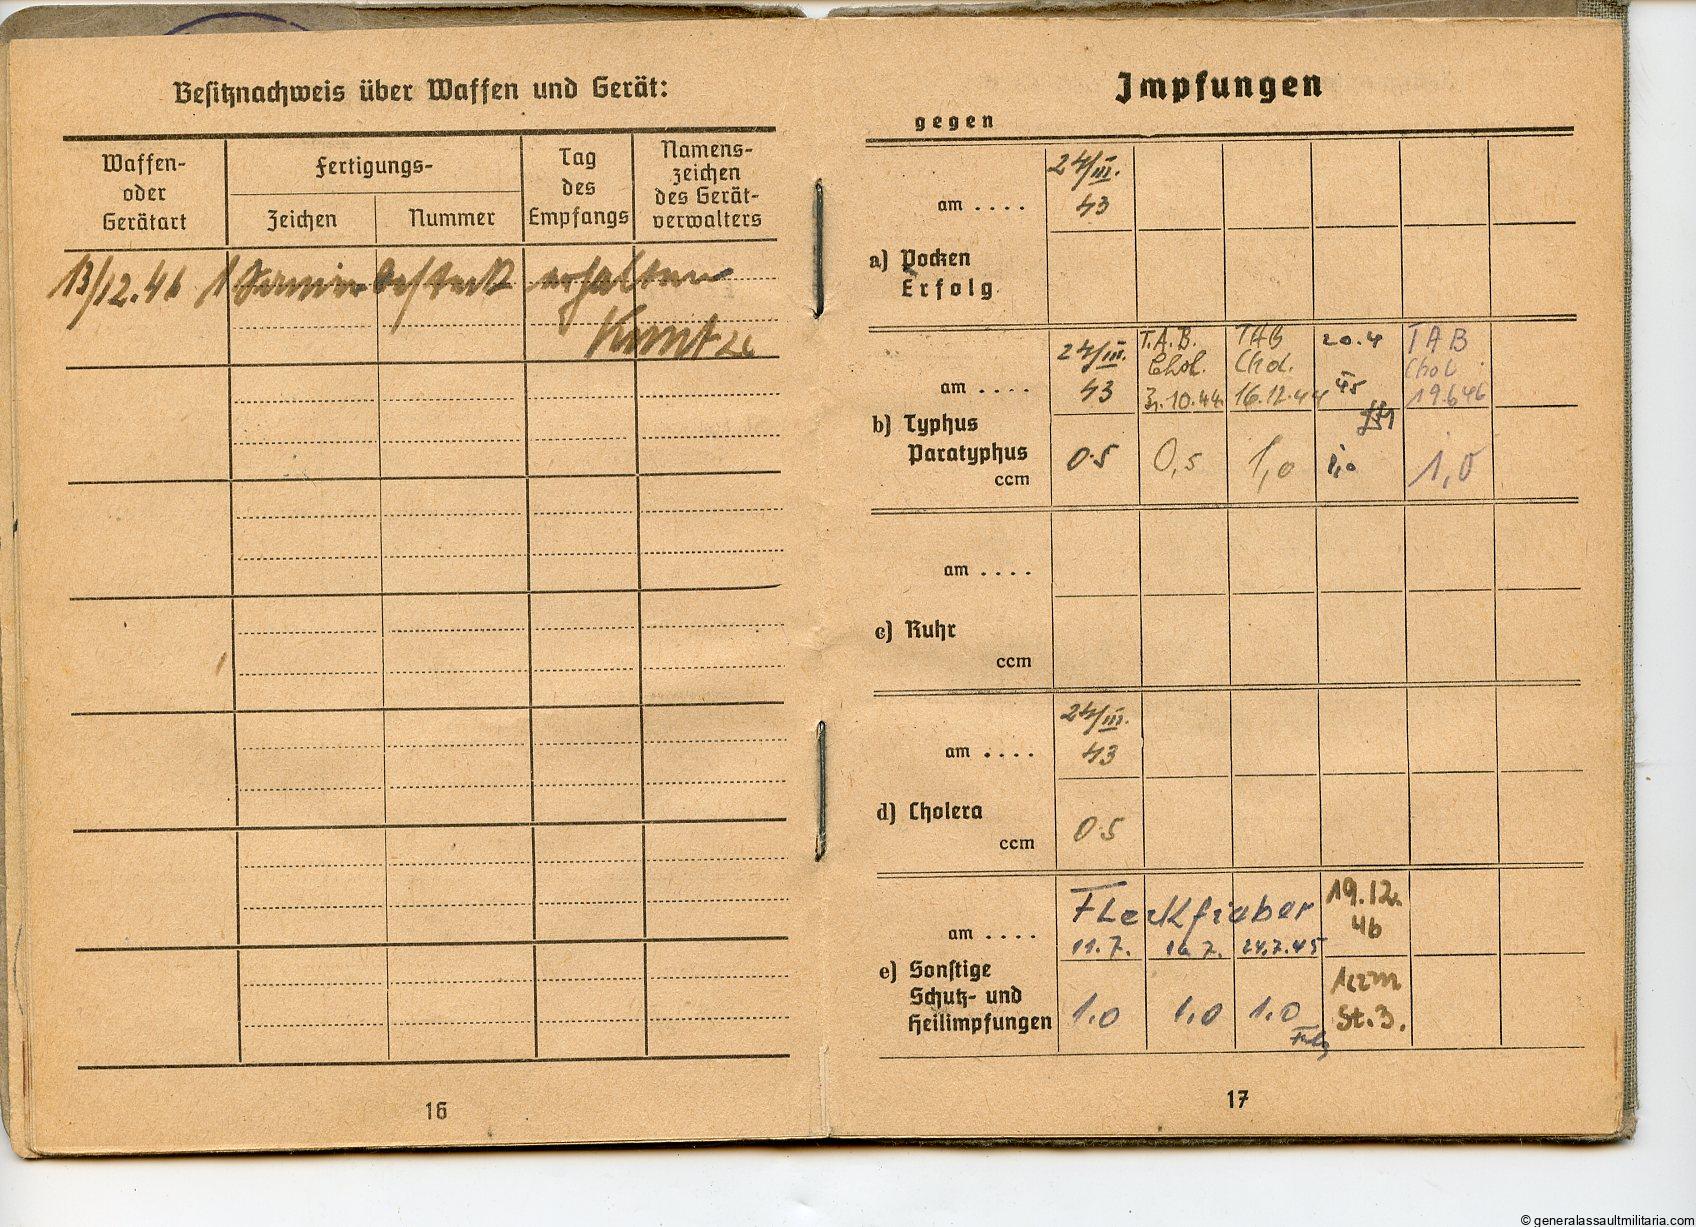 Besitznachweis über Waffen und Gerät:
Waffen-
oder
Gerätart
Fertigungs-
Zeichen
Nummer
Tag
des
Empfangs
Namens-
zeichen
des Gerät-
verwalters
13/12.46 1 besteck erhalten
16
Impfungen
gegen
am ....
24/III.
43
a) Pocken
Erfolg
am ....
24/III.
43
T.A.B.
Chol.
3.10.44.
TAB
Chol.
16.12.44
20.4
45
TAB
Chol.
19.6.46
b) Typhus
Paratyphus
ccm
0.5
0,5
1,0
1,0
1,0
am ....
c) Ruhr
ccm
am ....
24/III.
43
d) Cholera
ccm
0.5
Fleckfieber
19.12.
46
am ....
11.7.
16.7.
24.7.45
e) Sonstige
Schutz- und
Heilimpfungen
1.0
1.0
1.0
1ccm
St.3.
17
© generalassaultmilitaria.com